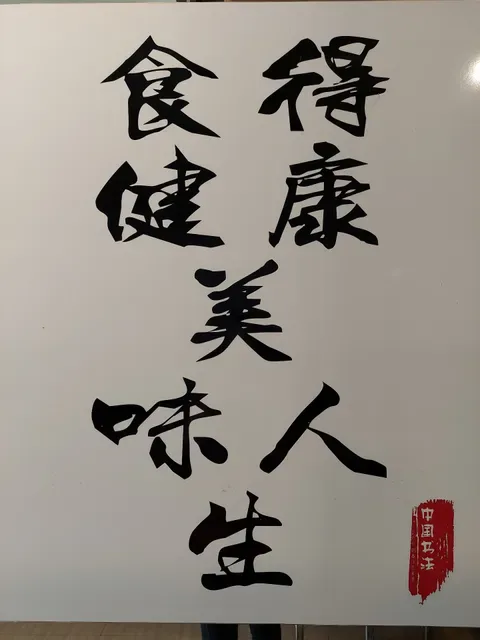 食得
健康
美
味人
生
中国书法